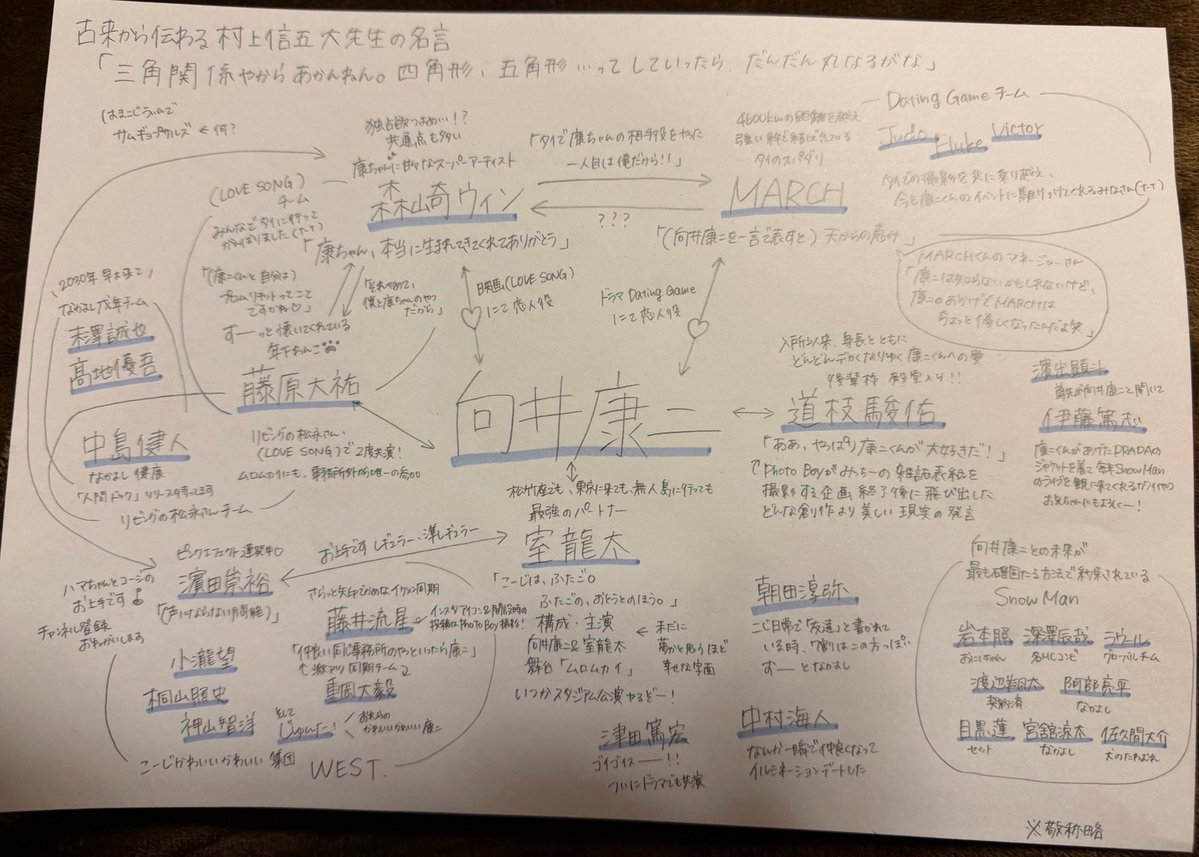 古来から伝わる村上信五大先生の名言
「三角関係やからあかんねん。四角形、五角形…ってしていったら、だんだん丸なるがな」
はまこじうぃんで
サムギョプサルズ ← 何?
独占欲つよめ…!?
共通点も多い
康ちゃんに甘々なスーパーアーティスト
森崎ウィン
「康ちゃん、本当に生まれてきてくれてありがとう」
「タイで康ちゃんの相手役をやった
一人目は俺だから!!」
???
4600kmの距離を越え
強い絆で結ばれている
タイのスパダリ
MARCH
「(向井康二を一言で表すと) 天からの恵み」
Dating Game チーム
Judo
Fluke
Victor
タイでの撮影を共に乗り越え、
今も康二くんのイベントに駆けつけてくれるみなさん(T-T)
MARCHくんのマネージャーさん
「康二は知らないかもしれないけど、
康二のおかげでMARCHは
ちょっと優しくなったんだよ笑」
(LOVE SONG)
チーム
みんなでタイに行って
がんばりました(T-T)
「(康二くんと自分は)
ってこと
ですかね♡」
ずーっと懐いてくれている
年下わんこ
「それやめて、
僕と康ちゃんのやつ
だから」
映画(LOVE SONG)
にて恋人役
ドラマ Dating Game
にて恋人役
2030年 早よ来て、
なかよし戌年チーム
末澤誠也
髙地優吾
藤原大祐
リビングの松永さん、
(LOVE SONG)で2度共演!
ムロムカイにも、事務所外から唯一の参加
中島健人
なかよし 健康
「人間ドック」リリース待ってます
リビングの松永さんチーム
向井康二
入所以来、身長とともに
どんどんデカくなりゆく康二くんへの愛
後輩枠 殿堂入り!!
道枝駿佑
「ああ、やっぱり康二くんが大好きだ!」
Photo Boyがみっちーの雑誌表紙を
撮影する企画 終了後に飛び出した
どんな創作より美しい現実の発言
濵田
尊敬 向井康二と聞いて
伊藤篤志
康二くんがあげたPRADAの
ジャケットを着て毎年Snow Man
のライブを観に来てくれるガチイヤつ
お兄ちゃんにもよろしくー!
松竹座でも、東京に来ても、無人島に行っても
最強のパートナー
室龍太
「こーじは、ふたご。
ふたごの、おとうとのほう。」
構成・主演
向井康二&室龍太
舞台「ムロムカイ」
← 未だに
夢かと思うほど
幸せな字面
いつかスタジアム公演やるどー!
お上手です レギュラー・準レギュラー
ピンクエフェクト連発中♡
濵田崇裕
「(声にならない悶絶)」
ハマちゃんとコージの
お上手です
チャンネル登録
おねがいします
さらっと矢印でかめなイケメン同期
藤井流星
インスタアイコン&開設時の
投稿はPhotoBoy撮影!
「仲良い同じ事務所のやつといったら康二」
激アツ同期チーム
重岡大毅
おれらの
かわいいかわいい康二
小瀧望
桐山照史
神山智洋
そして
じゅんた!
こーじかわいいかわいい 集団
WEST.
朝田淳弥
こじ日常で"友達"と書かれて
いる時、7割はこの方っぽい
ずーっとなかよし
津田篤宏
ゴイゴイスーー!!
ついにドラマでも共演
中村海人
なんか一瞬で仲良くなって
イルミネーションデートした
向井康二との未来が
最も確固たる方法で約束されている
Snow Man
岩本照
おにいちゃん
深澤辰哉
名MCコンビ
ラウール
グローバルチーム
渡辺翔太
契約済
阿部亮平
なかよし
目黒蓮
セット
宮舘涼太
なかよし
佐久間大介
犬のたわむれ
※敬称略